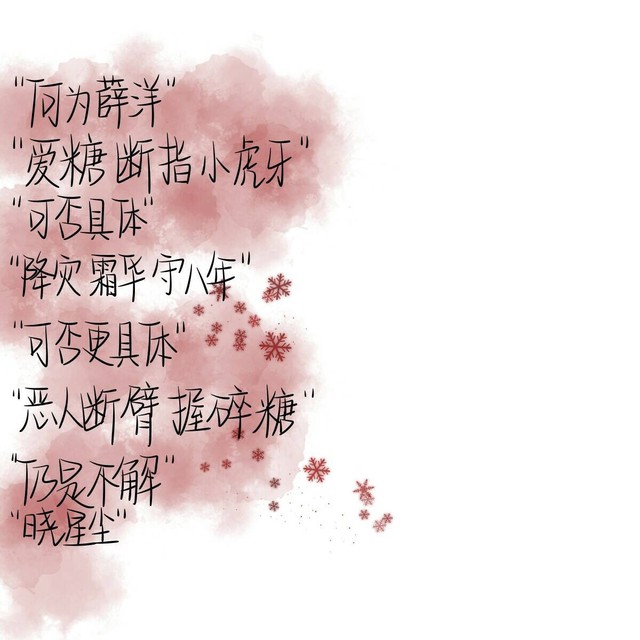 "何为薛洋"
"爱糖断指小虎牙"
"可否具体"
"降灾霜华守八年"
"可否更具体"
"恶人断臂握碎糖"
"仍是不解"
"晓星尘"